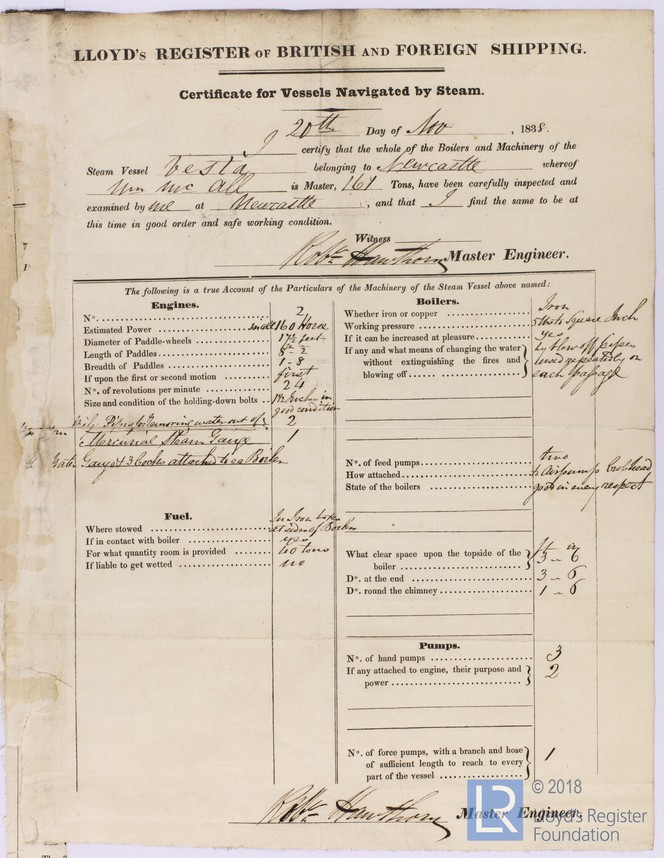 LLOYD'S REGISTER OF BRITISH AND FOREIGN SHIPPING.
Certificate for Vessels Navigated by Steam.
20th Day of Nov, 1838.
I certify that the whole of the Boilers and Machinery of the
Steam Vessel Vesta belonging to Newcastle whereof
Wm Mc All is Master, 161 Tons, have been carefully inspected and
examined by me at Newcastle, and that I find the same to be at
this time in good order and safe working condition.
Witness
Robt Hawthorn Master Engineer.
The following is a true Account of the Particulars of the Machinery of the Steam Vessel above named:
Engines.
No. 2
Estimated Power 60 Horse
Diameter of Paddle-wheels feet
Length of Paddles
Breadth of Paddles 1-8
If upon the first or second motion first
No. of revolutions per minute 24
Size and condition of the holding-down bolts Inch in
good condition
Pipes for removing water out of 2
Mercurial Steam Gauge 1
Water Gauge & 3 Cocks attached to ea Boiler
Fuel.
Where stowed In Iron
at sides of Boilers
If in contact with boiler yes
For what quantity room is provided tons
If liable to get wetted no
Boilers.
Whether iron or copper Iron
Working pressure Square Inch
If it can be increased at pleasure yes
If any and what means of changing the water
without extinguishing the fires and
blowing off by blow off pipes
used repeatedly on
each passage
No. of feed pumps two
How attached to Airpump Crosshead
State of the boilers good in every respect
What clear space upon the topside of the
boiler ft in
3 - 6
Do. at the end 3 - 6
Do. round the chimney 1 - 6
Pumps.
No. of hand pumps 3
If any attached to engine, their purpose and
power 2
No. of force pumps, with a branch and hose
of sufficient length to reach to every
part of the vessel 1
Robt Hawthorn Master Engineer.
LR
© 2018
Lloyd's Register
Foundation